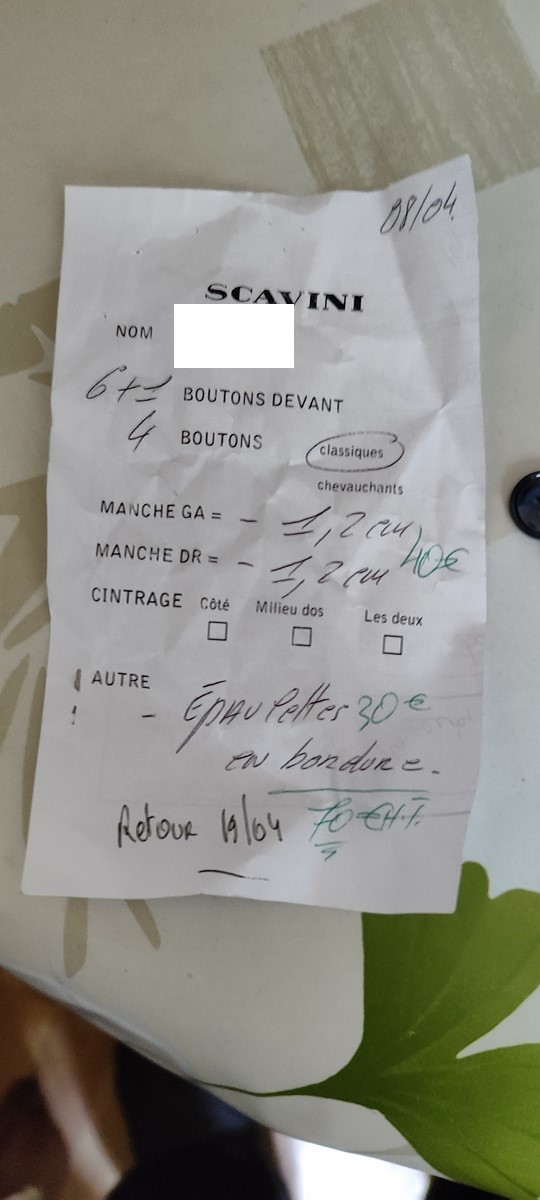 08/04
SCAVINI
NOM
6+1 BOUTONS DEVANT
4 BOUTONS classiques
chevauchants
MANCHE GA = - 1,2 cm
MANCHE DR = - 1,2 cm 40€
CINTRAGE Côté Milieu dos Les deux
AUTRE
- Épaulettes 30€
en bordure.
Retour 19/04 70€H.T.